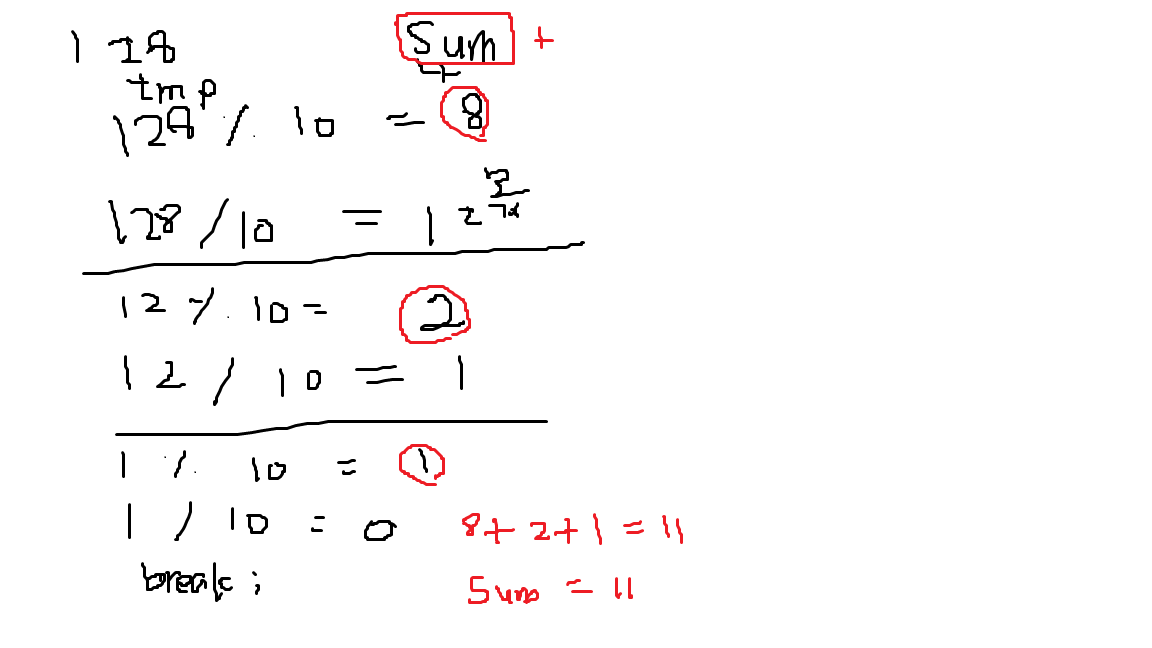 128 Sum +
tmp
128 % 10 = 8
128 / 10 = 12 몫
12 % 10 = 2
12 / 10 = 1
1 % 10 = 1
1 / 10 = 0 8 + 2 + 1 = 11
break; Sum = 11